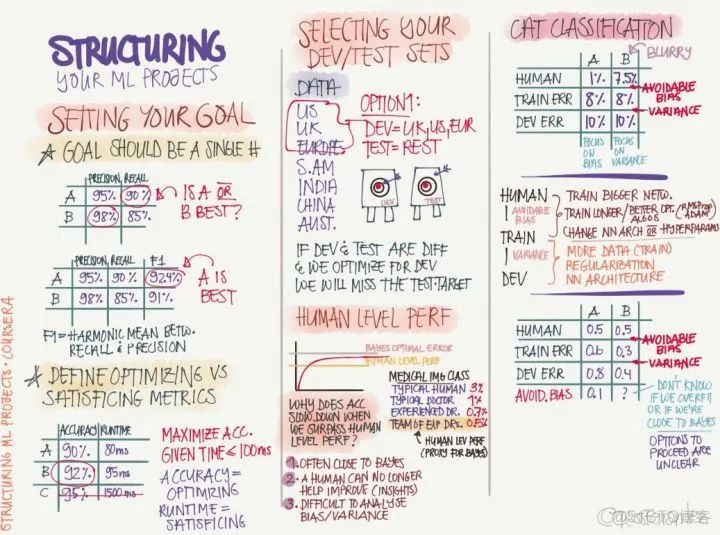 STRUCTURING
YOUR ML PROJECTS
SETTING YOUR GOAL
GOAL SHOULD BE A SINGLE #
PRECISION, RECALL
A 95% 90%
B 98% 85%
IS A OR
B BEST?
PRECISION, RECALL F1
A 95% 90% 92.4%
B 98% 85% 91%
A IS
BEST
F1 = HARMONIC MEAN BETW.
RECALL & PRECISION
DEFINE OPTIMIZING VS
SATISFICING METRICS
ACCURACY RUNTIME
A 90% 80ms
B 92% 95ms
C 95% 1500 ms
MAXIMIZE ACC.
GIVEN TIME ≤ 100ms
ACCURACY =
OPTIMIZING
RUNTIME =
SATISFICING
STRUCTURING ML PROJECTS · COURSERA
SELECTING YOUR
DEV/TEST SETS
DATA
US
UK
EUROPE
S.AM
INDIA
CHINA
AUST.
OPTION1:
DEV = UK, US, EUR
TEST = REST
DEV
TEST
IF DEV & TEST ARE DIFF
& WE OPTIMIZE FOR DEV
WE WILL MISS THE TEST TARGET
HUMAN LEVEL PERF
BAYES OPTIMAL ERROR
HUMAN LEVEL PERF
WHY DOES ACC
SLOW DOWN WHEN
WE SURPASS HUMAN
LEVEL PERF?
MEDICAL IMG CLASS
TYPICAL HUMAN 3%
TYPICAL DOCTOR 1%
EXPERIENCED DR. 0.7%
TEAM OF EXP DRS. 0.5%
HUMAN LEV PERF
(PROXY FOR BAYES)
1. OFTEN CLOSE TO BAYES
2. A HUMAN CAN NO LONGER
HELP IMPROVE (INSIGHTS)
3. DIFFICULT TO ANALYSE
BIAS/VARIANCE
CAT CLASSIFICATION
A B
BLURRY
HUMAN 1% 7.5%
TRAIN ERR 8% 8%
DEV ERR 10% 10%
AVOIDABLE
BIAS
VARIANCE
FOCUS
ON
BIAS
FOCUS
ON
VARIANCE
HUMAN
AVOIDABLE
BIAS
TRAIN
VARIANCE
DEV
TRAIN BIGGER NETW.
TRAIN LONGER/BETTER OPT. ALGOS (RMSPROP ADAM)
CHANGE NN ARCH OR HYPERPARAMS
MORE DATA (TRAIN)
REGULARIZATION
NN ARCHITECTURE
A B
HUMAN 0.5 0.5
TRAIN ERR 0.6 0.3
DEV ERR 0.8 0.4
AVOID. BIAS 0.1 ?
AVOIDABLE
BIAS
VARIANCE
DON'T KNOW
IF WE OVERFIT
OR IF WE'RE
CLOSE TO BAYES
OPTIONS TO
PROCEED ARE
UNCLEAR